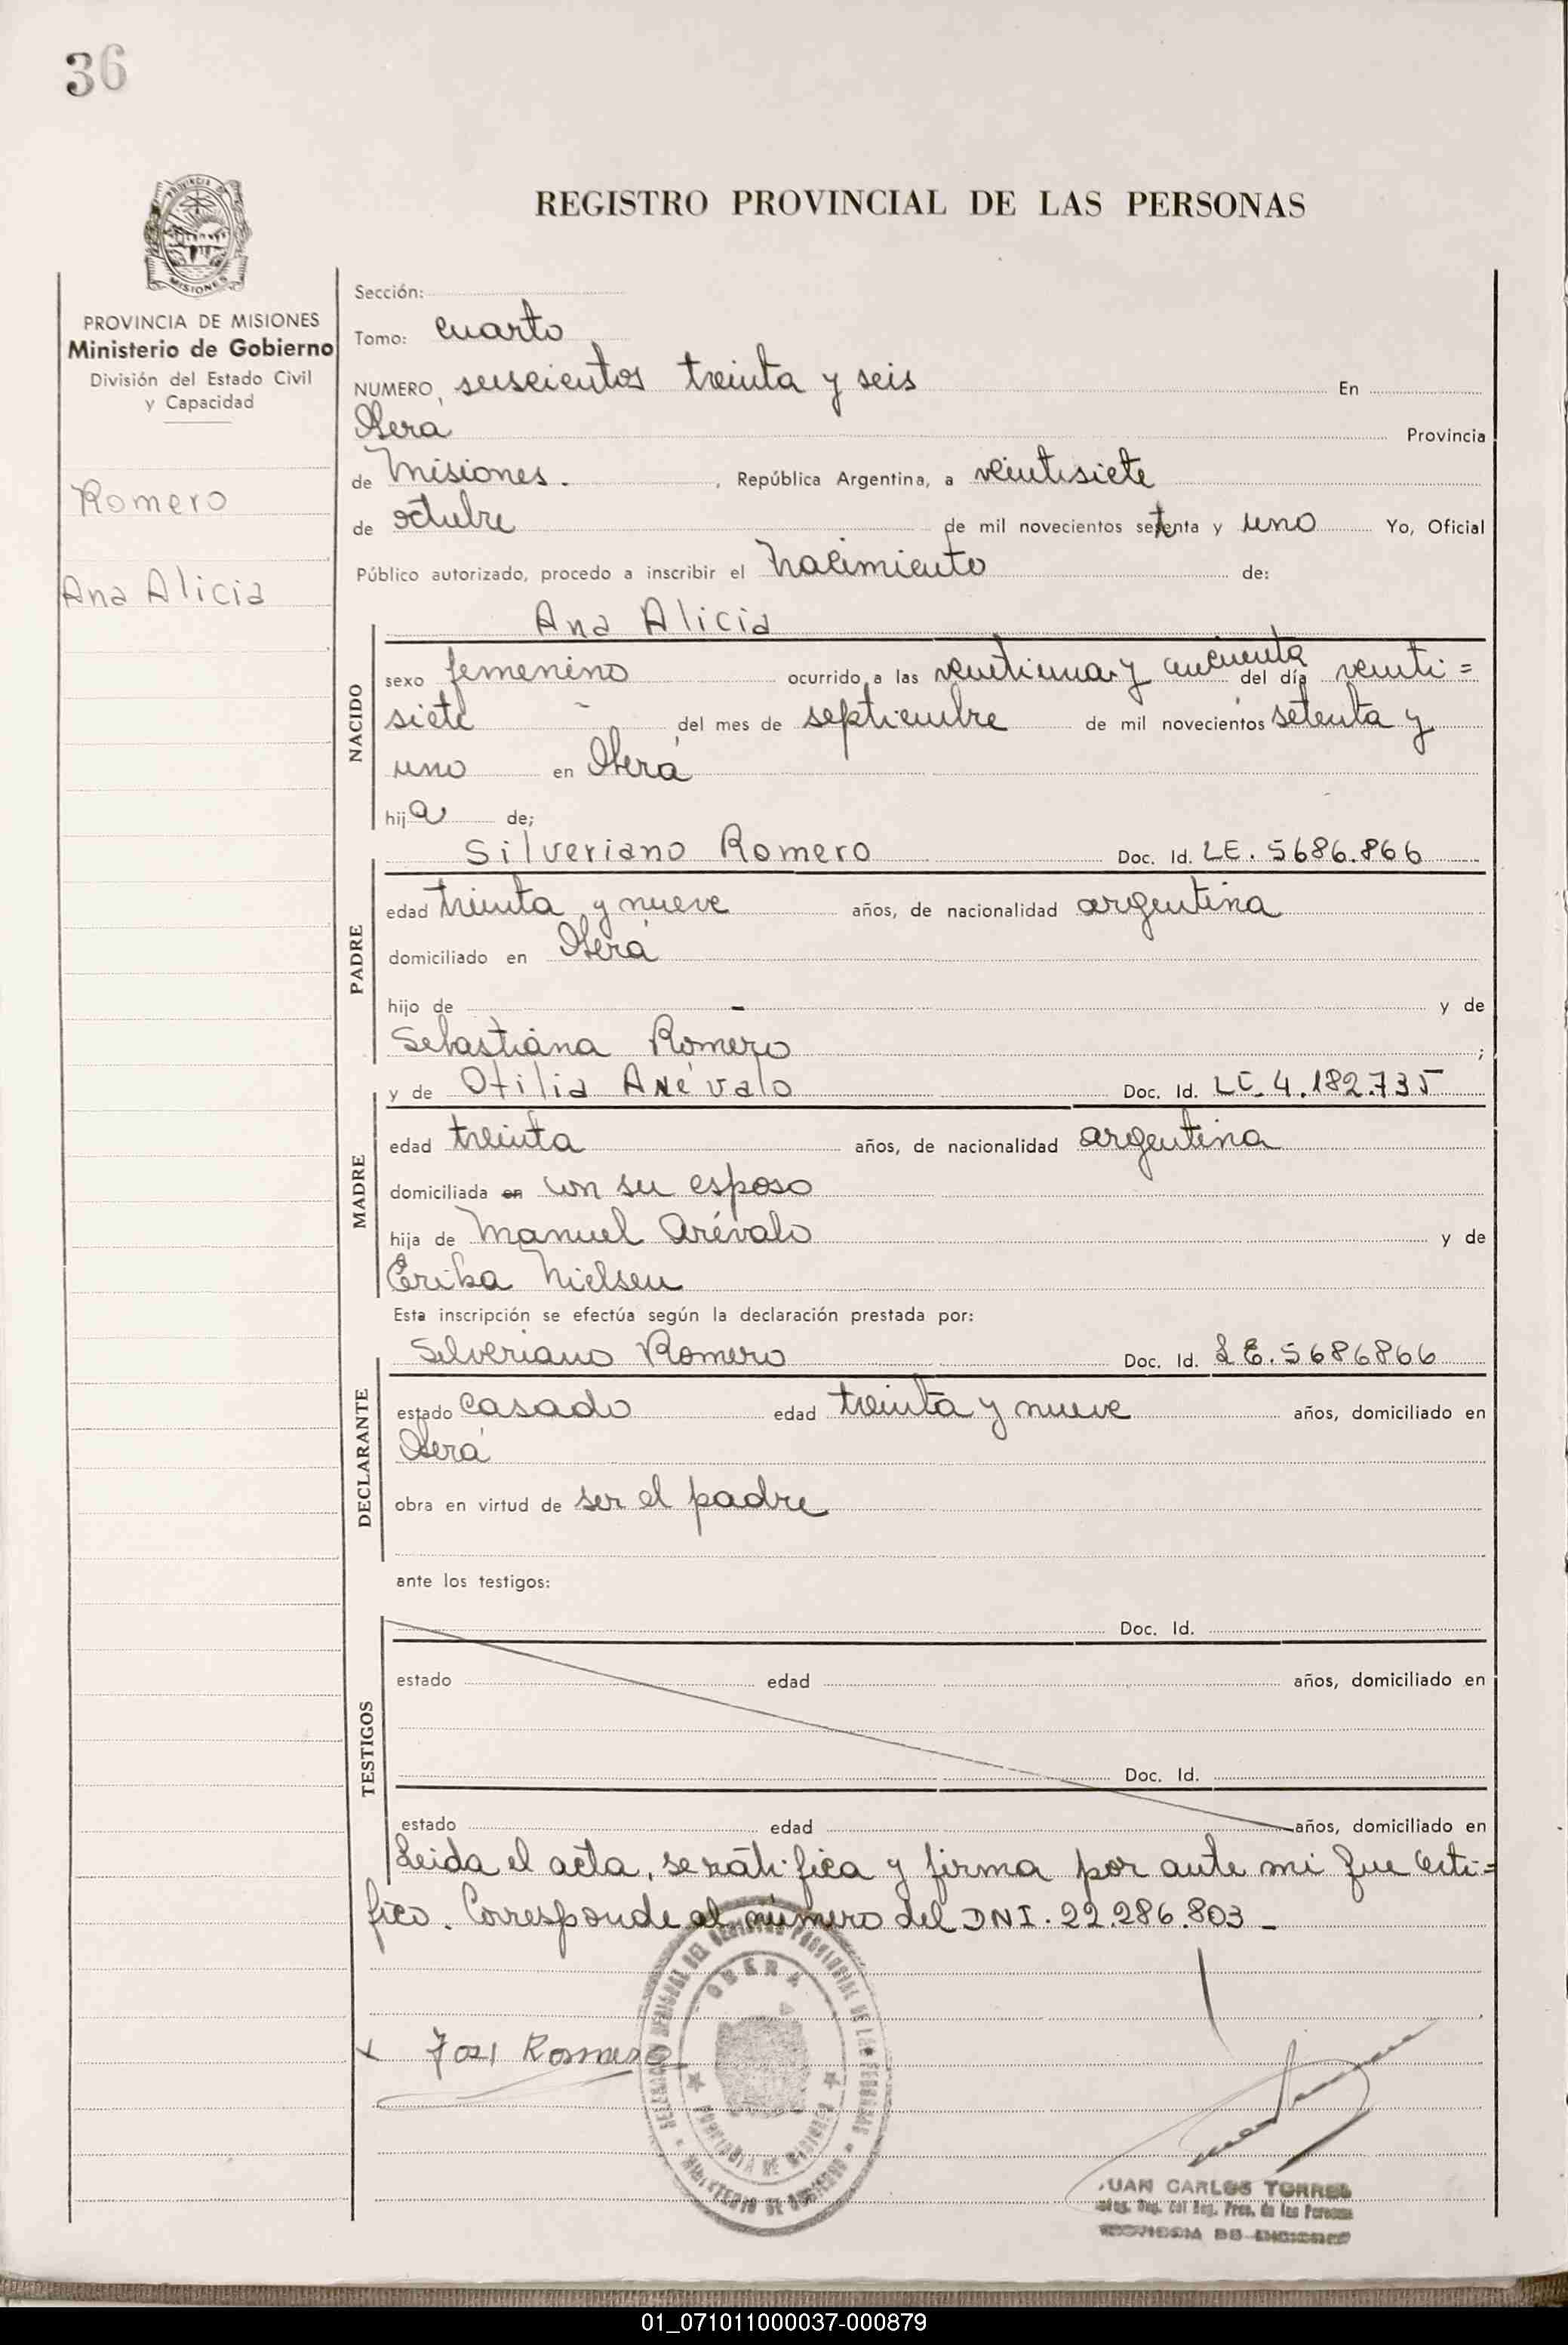 36
PROVINCIA DE
MISIONES
REGISTRO PROVINCIAL DE LAS PERSONAS
PROVINCIA DE MISIONES
Ministerio de Gobierno
División del Estado Civil
y Capacidad
Romero
Ana Alicia
Sección:
Tomo: cuarto
NUMERO, seiscientos treinta y seis En
Oberá Provincia
de Misiones. , República Argentina, a veintisiete
de octubre de mil novecientos setenta y uno Yo, Oficial
Público autorizado, procedo a inscribir el nacimiento de:
NACIDO
Ana Alicia
sexo femenino ocurrido a las veintiuna y cincuenta del día veinti=
siete del mes de septiembre de mil novecientos setenta y
uno en Oberá
hija de;
PADRE
Silveriano Romero Doc. Id. LE. 5686.866
edad treinta y nueve años, de nacionalidad argentina
domiciliado en Oberá
hijo de - y de
Sebastiana Romero ;
MADRE
y de Otilia Arévalo Doc. Id. LC. 4.182.735
edad treinta años, de nacionalidad argentina
domiciliada en con su esposo
hija de Manuel Arévalo y de
Erika Nielsen
Esta inscripción se efectúa según la declaración prestada por:
DECLARANTE
Silveriano Romero Doc. Id. LE. 5686866
estado casado edad treinta y nueve años, domiciliado en
Oberá
obra en virtud de ser el padre
ante los testigos:
TESTIGOS
Doc. Id.
estado edad años, domiciliado en
Doc. Id.
estado edad años, domiciliado en
Leida el acta, se ratifica y firma por ante mi que certi=
fico. Corresponde al número del DNI. 22.286.803 -
x José Romero
DEL REGISTRO PROVINCIAL DE LAS PERSONAS
OBERA
PROVINCIA DE MISIONES
MINISTERIO DE GOBIERNO
JUAN CARLOS TORRES
Reg. Prov. de las Personas
PROVINCIA DE MISIONES
01_071011000037-000879